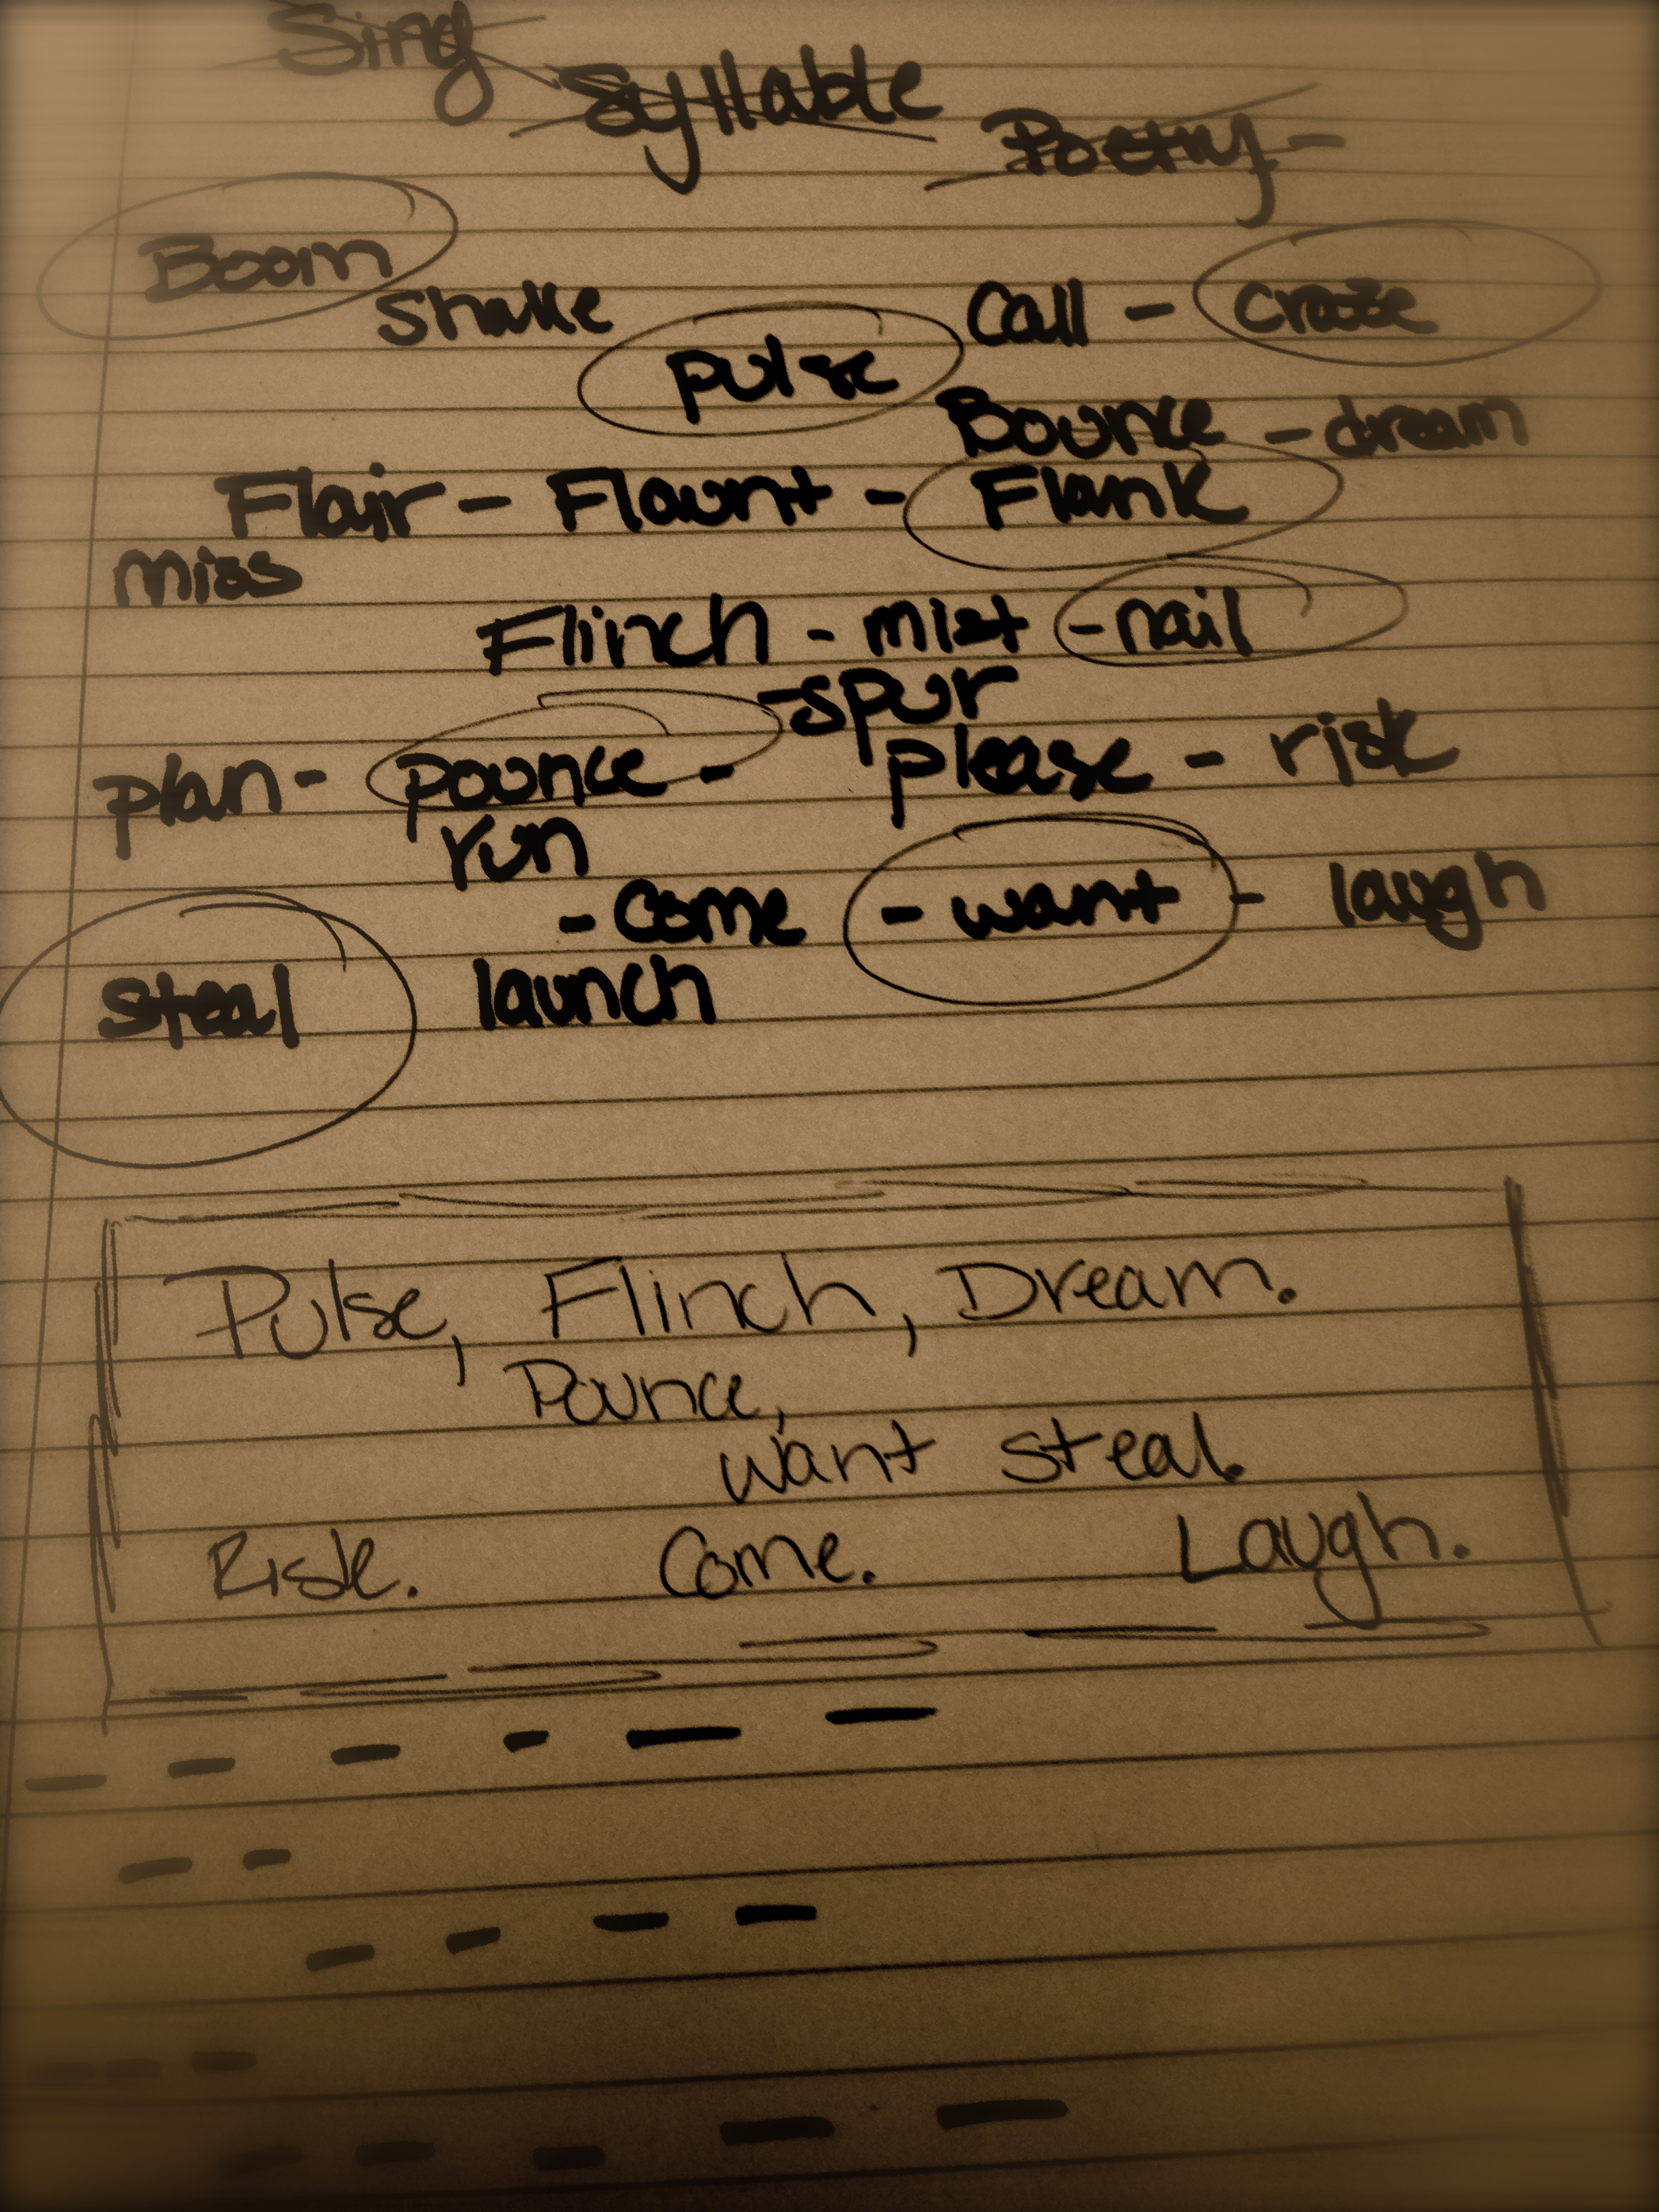 Sing Syllable Poetry -
Boom
shake
pulse
Call - craze
Bounce - dream
Flair - Flaunt - Flank
miss
Flinch - mist - nail
- spur
plan - pounce - please - risk
run
- come - want - laugh
steal launch
Pulse, Flinch, Dream.
Pounce,
want steal.
Risk. Come. Laugh.